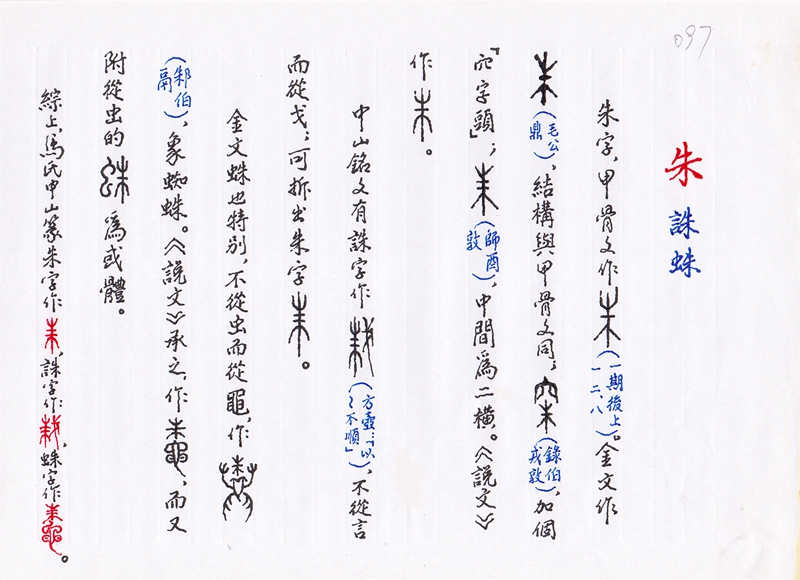 097
朱 誅 蛛
朱字，甲骨文作（一期後上一二、八）。金文作
（毛公鼎），結構與甲骨文同；（錄伯戎敦），加個
「宀字頭」；（師酉敦），中間爲二橫。《說文》
作。
中山銘文有誅字作（方壺：「以〻不順」），不從言
而從戈；可拆出朱字。
金文蛛也特別，不從虫而從黽，作
（邾伯鬲），象蜘蛛。《說文》承之，作，而又
附從虫的蛛爲或體。
綜上，馮氏中山篆朱字作，誅字作，蛛字作。